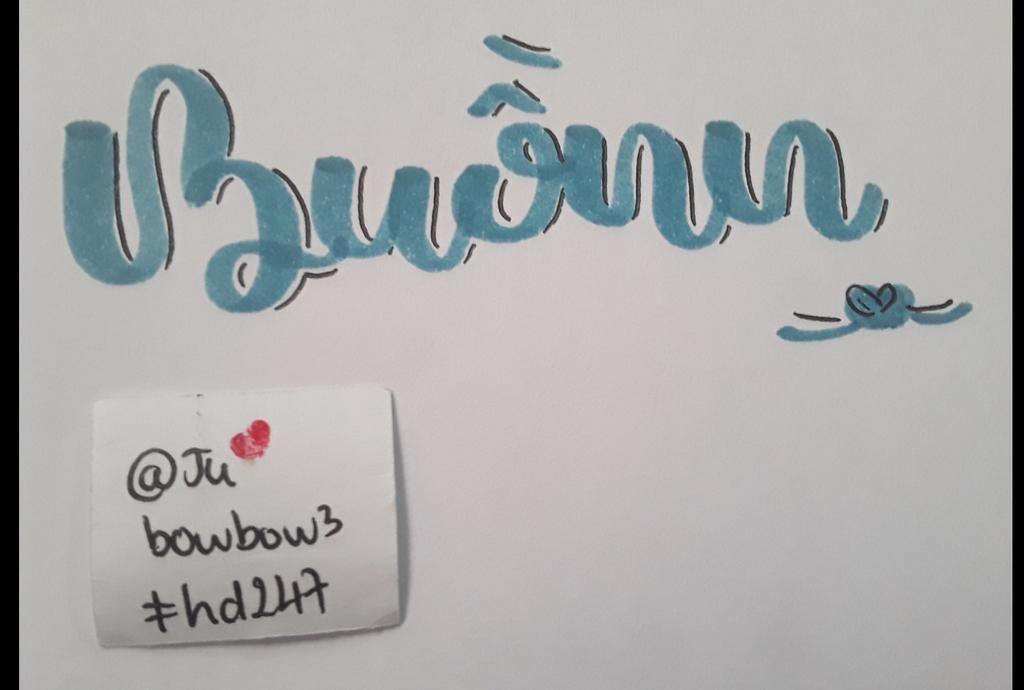 Buồnn
@Ju
bowbow3
#hd247